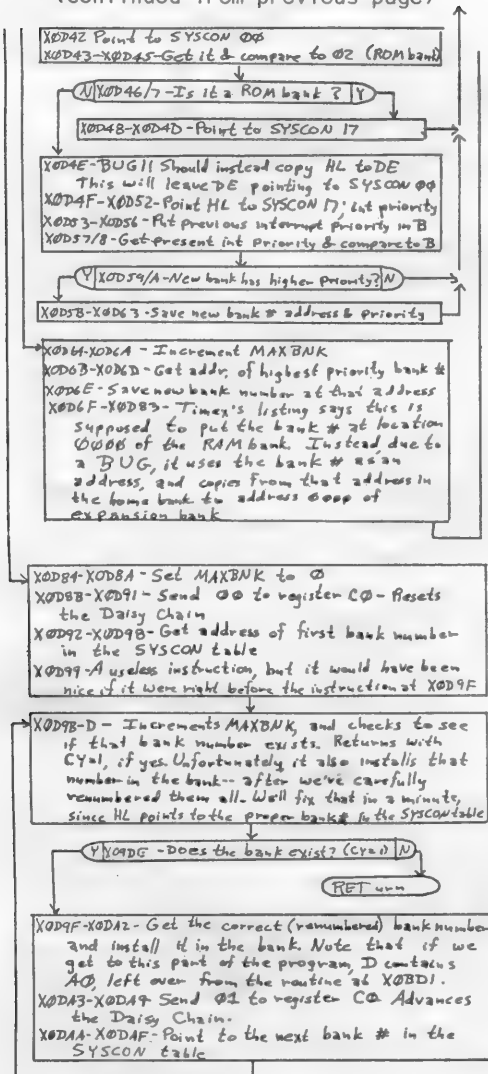 (continued from previous page)
XØD42 Point to SYSCON ØØ
XØD43-XØD45-Get it & compare to Ø2 (ROM bank)
N XØD46/7-Is it a ROM bank? Y
XØD4B-XØD4D-Point to SYSCON 17
XØD4E-BUG!! Should instead copy HL to DE
This will leave DE pointing to SYSCON ØØ
XØD4F-XØD52-Point HL to SYSCON 17, int priority
XØD53-XØD56-Put previous interrupt priority in B
XØD57/8-Get present int Priority & compare to B
Y XØD59/A-New bank has higher priority? N
XØD5B-XØD63-Save new bank # address & priority
XØD64-XØD6A - Increment MAXBNK
XØD6B-XØD6D-Get addr. of highest priority bank #
XØD6E-Save new bank number at that address
XØD6F-XØD83-Timex's listing says this is
supposed to put the bank # at location
ØØØØ of the RAM bank. Instead, due to
a BUG, it uses the bank # as an
address, and copies from that address in
the home bank to address ØØØØ of
expansion bank
XØD84-XØD8A-Set MAXBNK to Ø
XØD8B-XØD91-Send ØØ to register CØ-Resets
the Daisy Chain
XØD92-XØD98-Get address of first bank number
in the SYSCON table
XØD99-A useless instruction, but it would have been
nice if it were right before the instruction at XØD9F
XØD9B-D - Increments MAXBNK, and checks to see
if that bank number exists. Returns with
CY=1, if yes. Unfortunately it also installs that
number in the bank-- after we've carefully
renumbered them all. We'll fix that in a minute,
since HL points to the proper bank # in the SYSCON table
Y XØ9DE -Does the bank exist? (CY=1) N
RETurn
XØD9F-XØDA2-Get the correct (renumbered) bank number
and install it in the bank. Note that if we
get to this part of the program, D contains
AØ, left over from the routine at XØBD1.
XØDA3-XØDA9 Send Ø1 to register CØ Advances
the Daisy Chain.
XØDAA-XØDAF-Point to the next bank # in the
SYSCON table